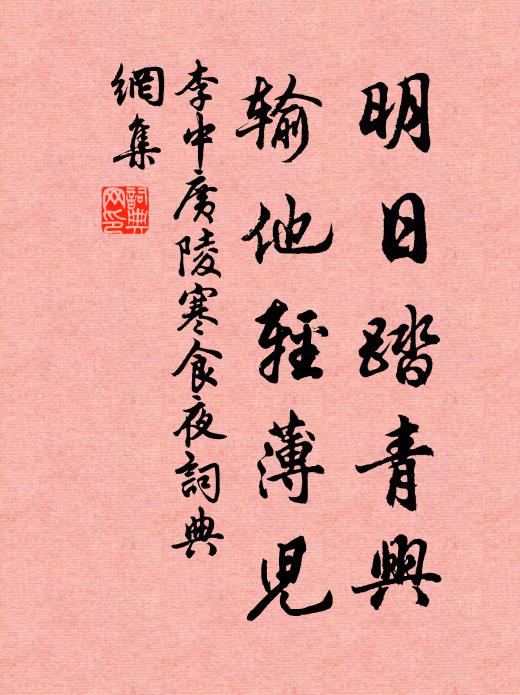 明日踏青興
输他輕薄兒
李中廣陵寒食夜詞典
網集
詞典網印